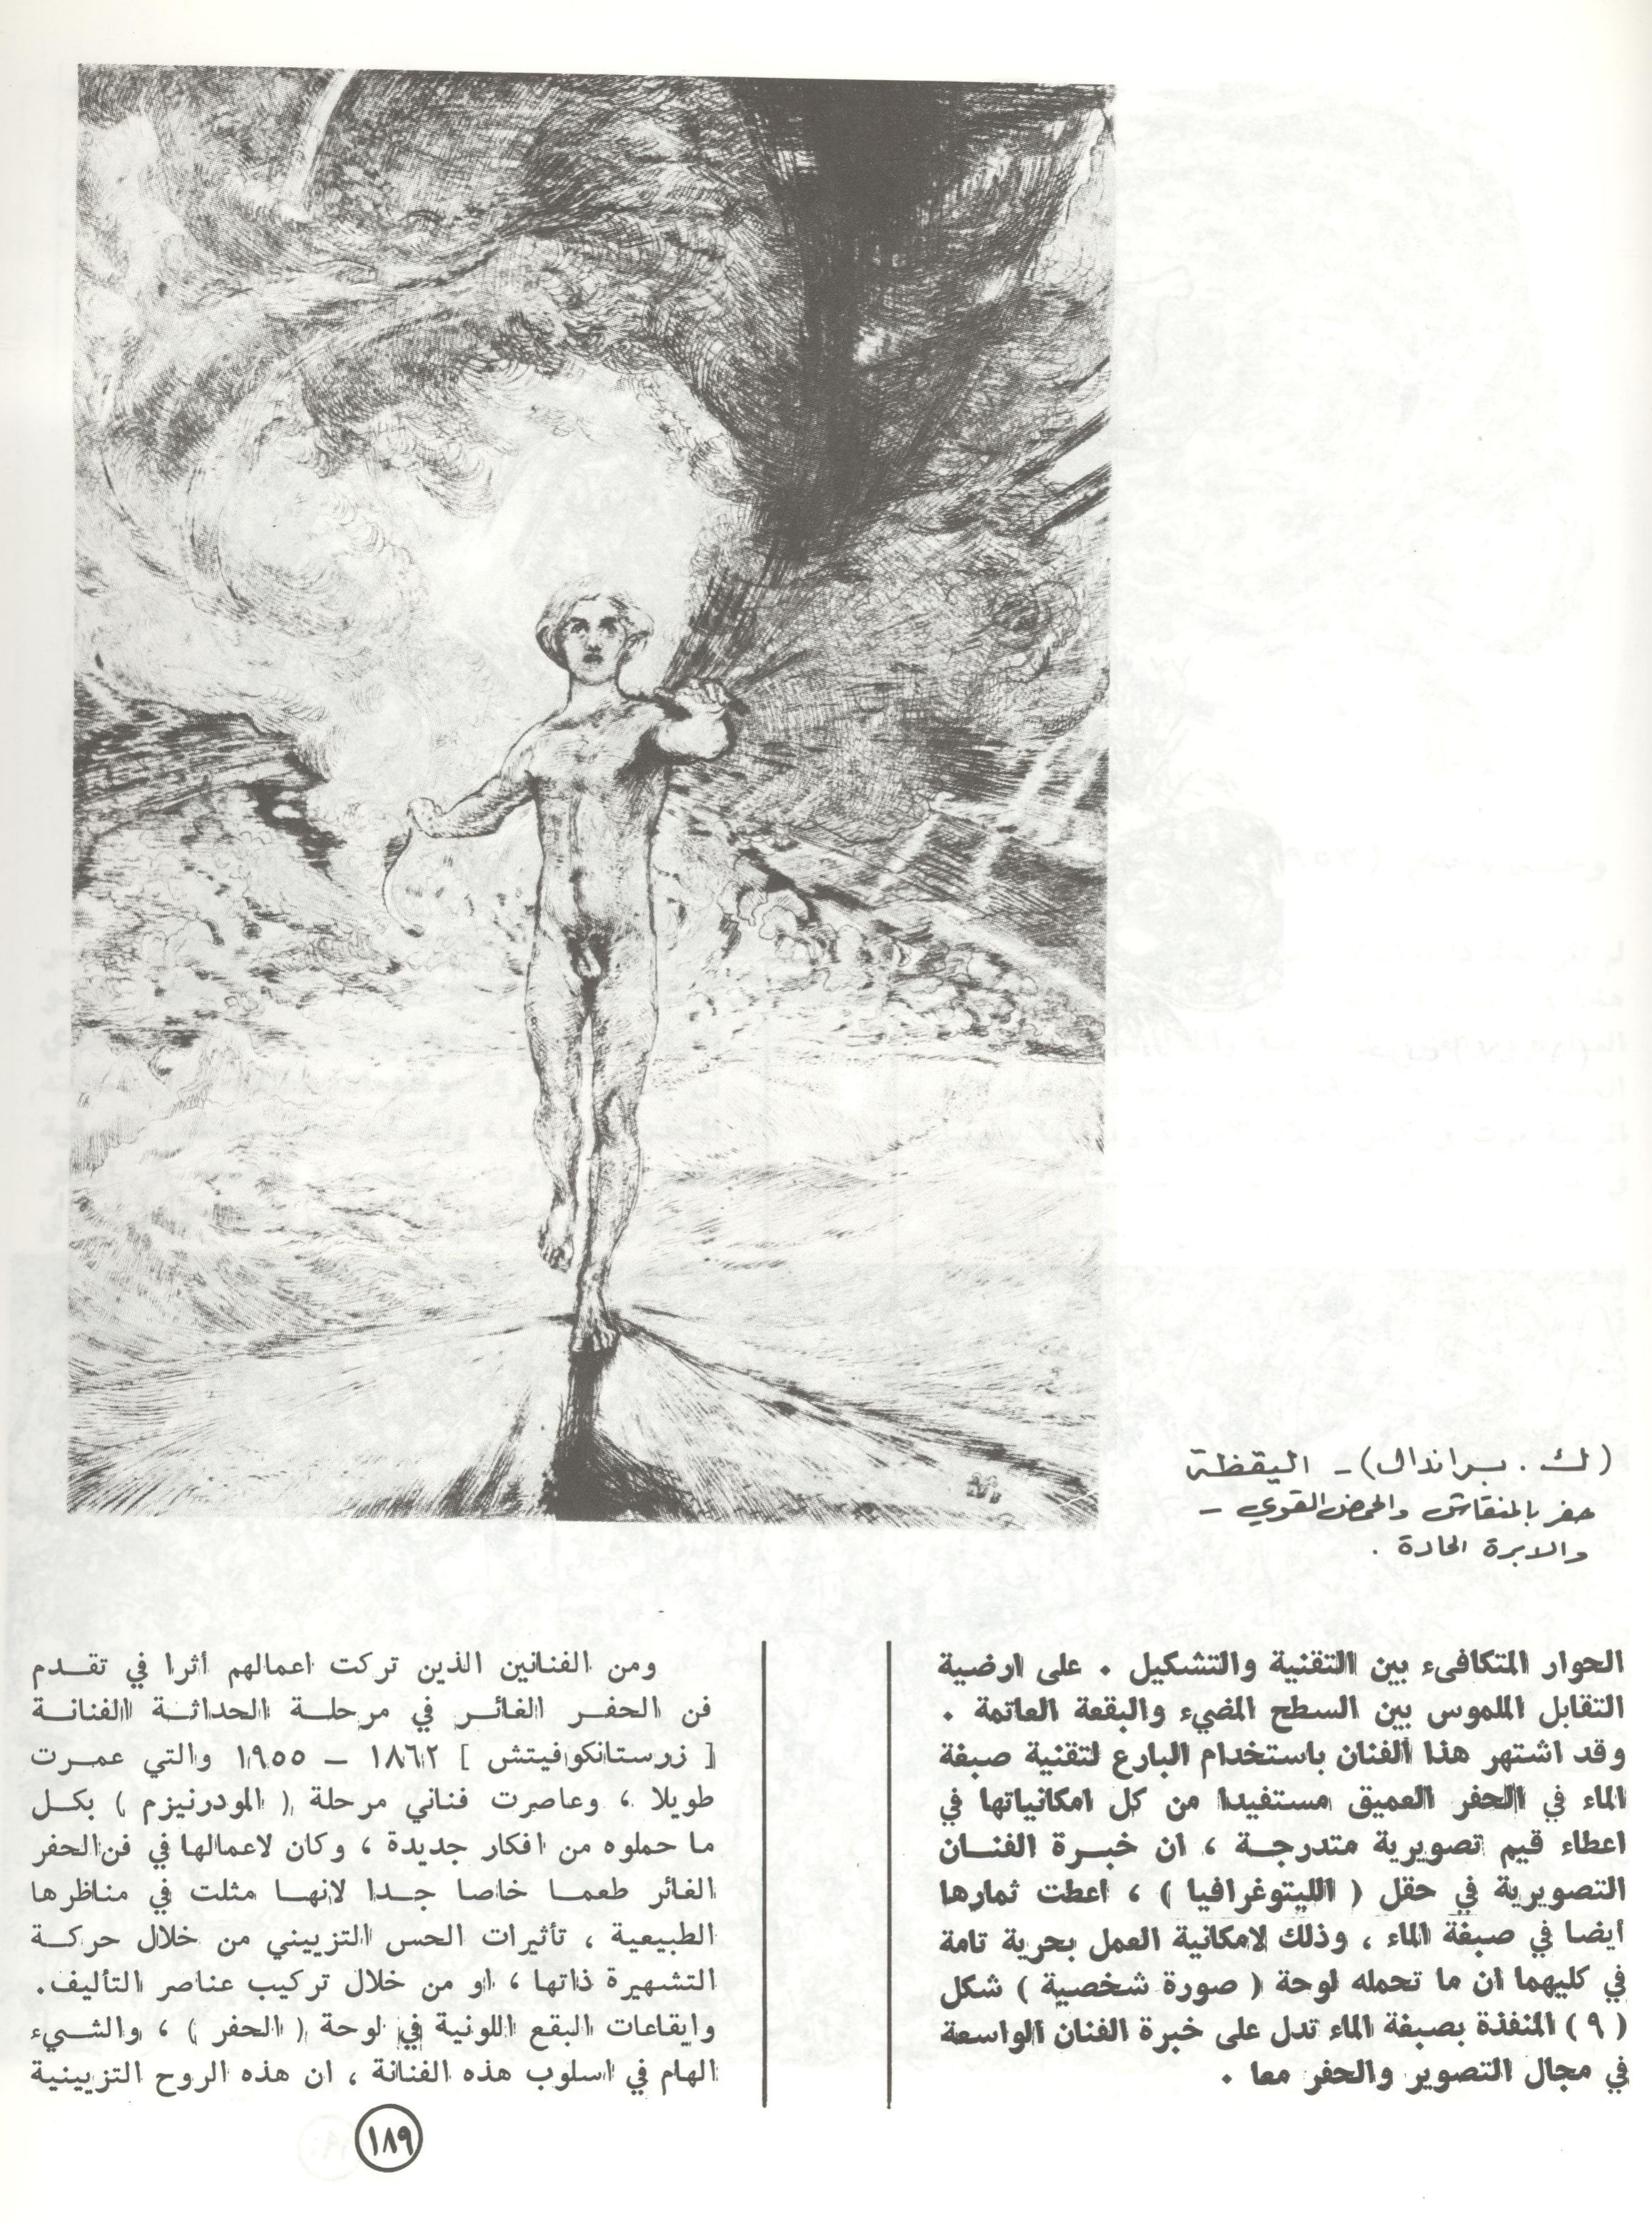 (ك . براندال) - اليقظة
حفر بالمنقاش والحمض القوي -
والابرة الحادة .
الحوار المتكافىء بين التقنية والتشكيل . على ارضية
التقابل الملموس بين السطح المضيء والبقعة العاتمة .
وقد اشتهر هذا الفنان باستخدام البارع لتقنية صبغة
الماء في الحفر العميق مستفيدا من كل امكانياتها في
اعطاء قيم تصويرية متدرجة ، ان خبرة الفنان
التصويرية في حقل ( الليتوغرافيا ) ، اعطت ثمارها
أيضا في صبغة الماء ، وذلك لامكانية العمل بحرية تامة
في كليهما ان ما تحمله لوحة ( صورة شخصية ) شكل
( ٩ ) المنفذة بصبغة الماء تدل على خبرة الفنان الواسعة
في مجال التصوير والحفر معا .
ومن الفنانين الذين تركت اعمالهم أثرا في تقدم
فن الحفر الغائر في مرحلة الحداثة الفنانة
[ زرستانكوفيتش ] ١٨٦٢ – ١٩٥٥ والتي عمرت
طويلا ، وعاصرت فناني مرحلة ( المودرنيزم ) بكل
ما حملوه من افكار جديدة ، وكان لاعمالها في فن الحفر
الغائر طعما خاصا جدا لانها مثلت في مناظرها
الطبيعية ، تأثيرات الحس التزييني من خلال حركة
التشهيرة ذاتها ، او من خلال تركيب عناصر التأليف.
وايقاعات البقع اللونية في لوحة ( الحفر ) ، والشيء
الهام في اسلوب هذه الفنانة ، ان هذه الروح التزيينية
١٨٩